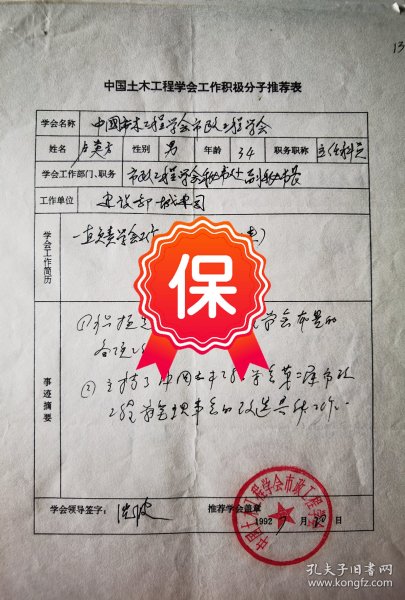 13
中国土木工程学会工作积极分子推荐表
学会名称 中国土木工程学会市政工程学会
姓名 卢英方 性别 男 年龄 34 职务职称 主任科员
学会工作部门、职务 市政工程学会秘书处副秘书长
工作单位 建设部城建司
学会工作简历
一直负责学会工作
保
事迹摘要
① 积极 学会布置的
各项
② 主持了中国土木工程学会第二届市政
工程学会理事会的改选具体工作.
学会领导签字: 推荐学会盖章
1992年 月 日
中国土木工程学会市政工程学会
孔夫子旧书网
www.kongfz.com